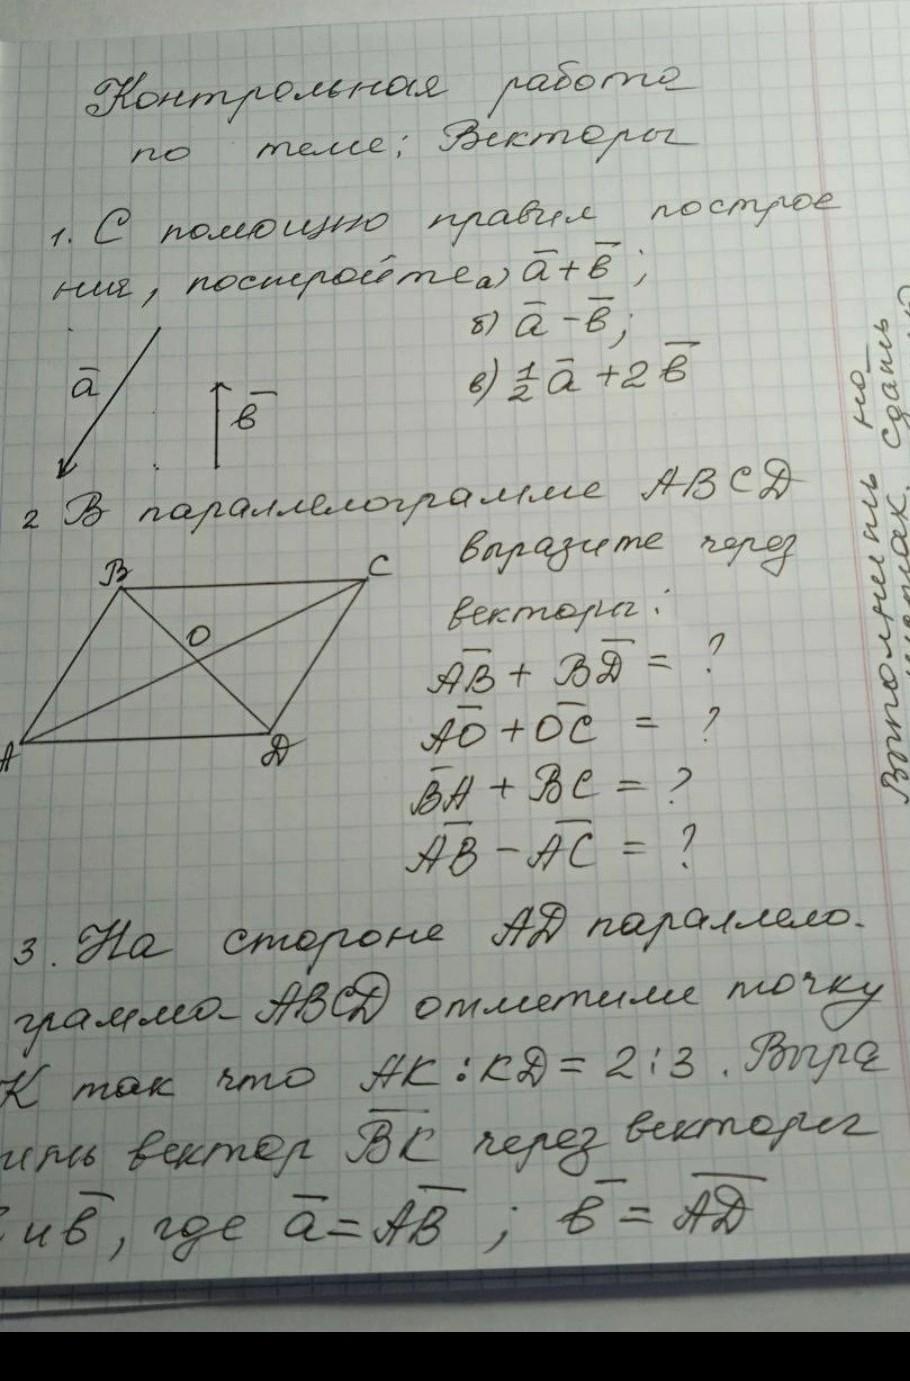 Контрольная работа
по теме: Векторы
1. С помощю правил построе
ния, постройте а) a̅ + в̅ ;
б) a̅ - в̅ ;
в) 1/2 a̅ + 2 в̅
a̅
в̅
2 В параллелограмме ABCD
выразите через
векторы:
B
C
O
A
D
A̅B̅ + B̅D̅ = ?
A̅O̅ + O̅C̅ = ?
B̅A̅ + BC = ?
A̅B̅ - A̅C̅ = ?
3. На стороне AD параллело-
грамма ABCD отметили точку
K так что AK : KD = 2 : 3 . Выра
ить вектор B̅K̅ через векторы
и в̅, где a̅ = A̅B̅ ; в̅ = A̅D̅
Выполнить на
сдать